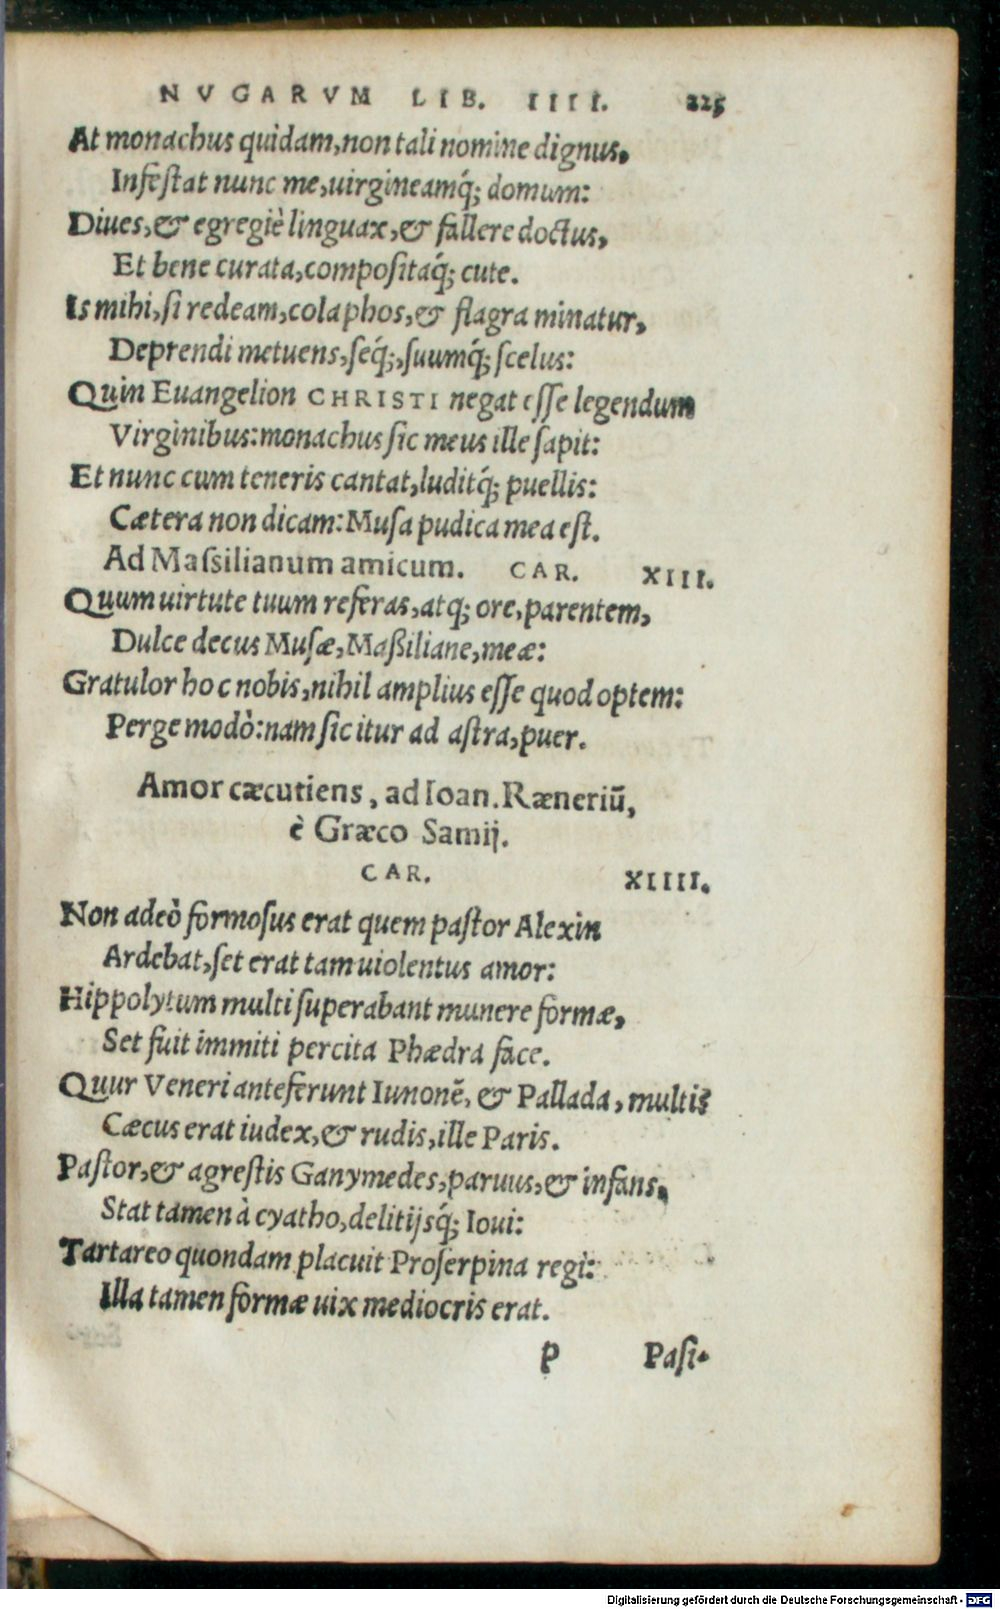 NVGARVM LIB. IIII. 225
At monachus quidam, non tali nomine dignus,
Infestat nunc me, uirgineamq́; domum:
Diues, & egregiè linguax, & fallere doctus,
Et bene curata, compositaq́; cute.
Is mihi, si redeam, colaphos, & flagra minatur,
Deprendi metuens, seq́;, suumq́; scelus:
Quin Euangelion CHRISTI negat esse legendum
Virginibus: monachus sic meus ille sapit:
Et nunc cum teneris cantat, luditq́; puellis:
Cætera non dicam: Musa pudica mea est.
Ad Massilianum amicum. CAR. XIII.
Quum uirtute tuum referas, atq; ore, parentem,
Dulce decus Musæ, Maßiliane, meæ:
Gratulor hoc nobis, nihil amplius esse quod optem:
Perge modò: nam sic itur ad astra, puer.
Amor cæcutiens, ad Ioan. Ræneriū,
è Græco Samij.
CAR. XIIII.
Non adeò formosus erat quem pastor Alexin
Ardebat, set erat tam uiolentus amor:
Hippolytum multi superabant munere formæ,
Set fuit immiti percita Phædra face.
Quur Veneri anteferunt Iunonē, & Pallada, multis
Cæcus erat iudex, & rudis, ille Paris.
Pastor, & agrestis Ganymedes, paruus, & infans,
Stat tamen à cyatho, delitijsq́; Ioui:
Tartareo quondam placuit Proserpina regi:
Illa tamen formæ uix mediocris erat.
P Pasi-
Digitalisierung gefördert durch die Deutsche Forschungsgemeinschaft - DFG